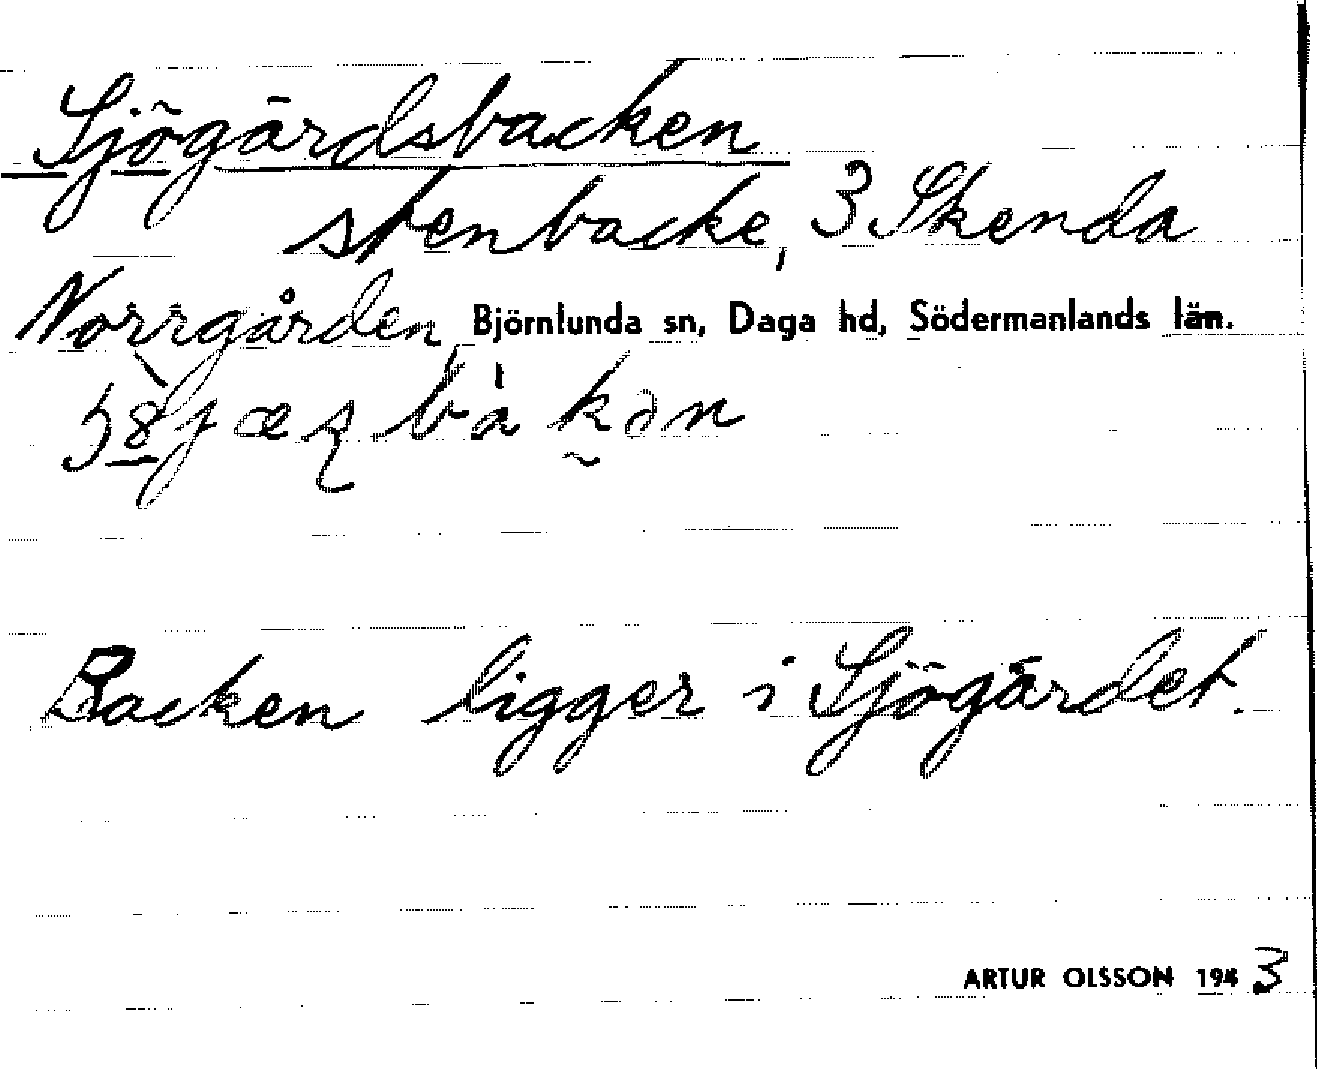 Sjögärdsbacken
stenbacke, 3 Skenda
Norrgården Björnlunda sn, Daga hd, Södermanlands län.
Backen ligger i Sjögärdet.
ARTUR OLSSON 1943